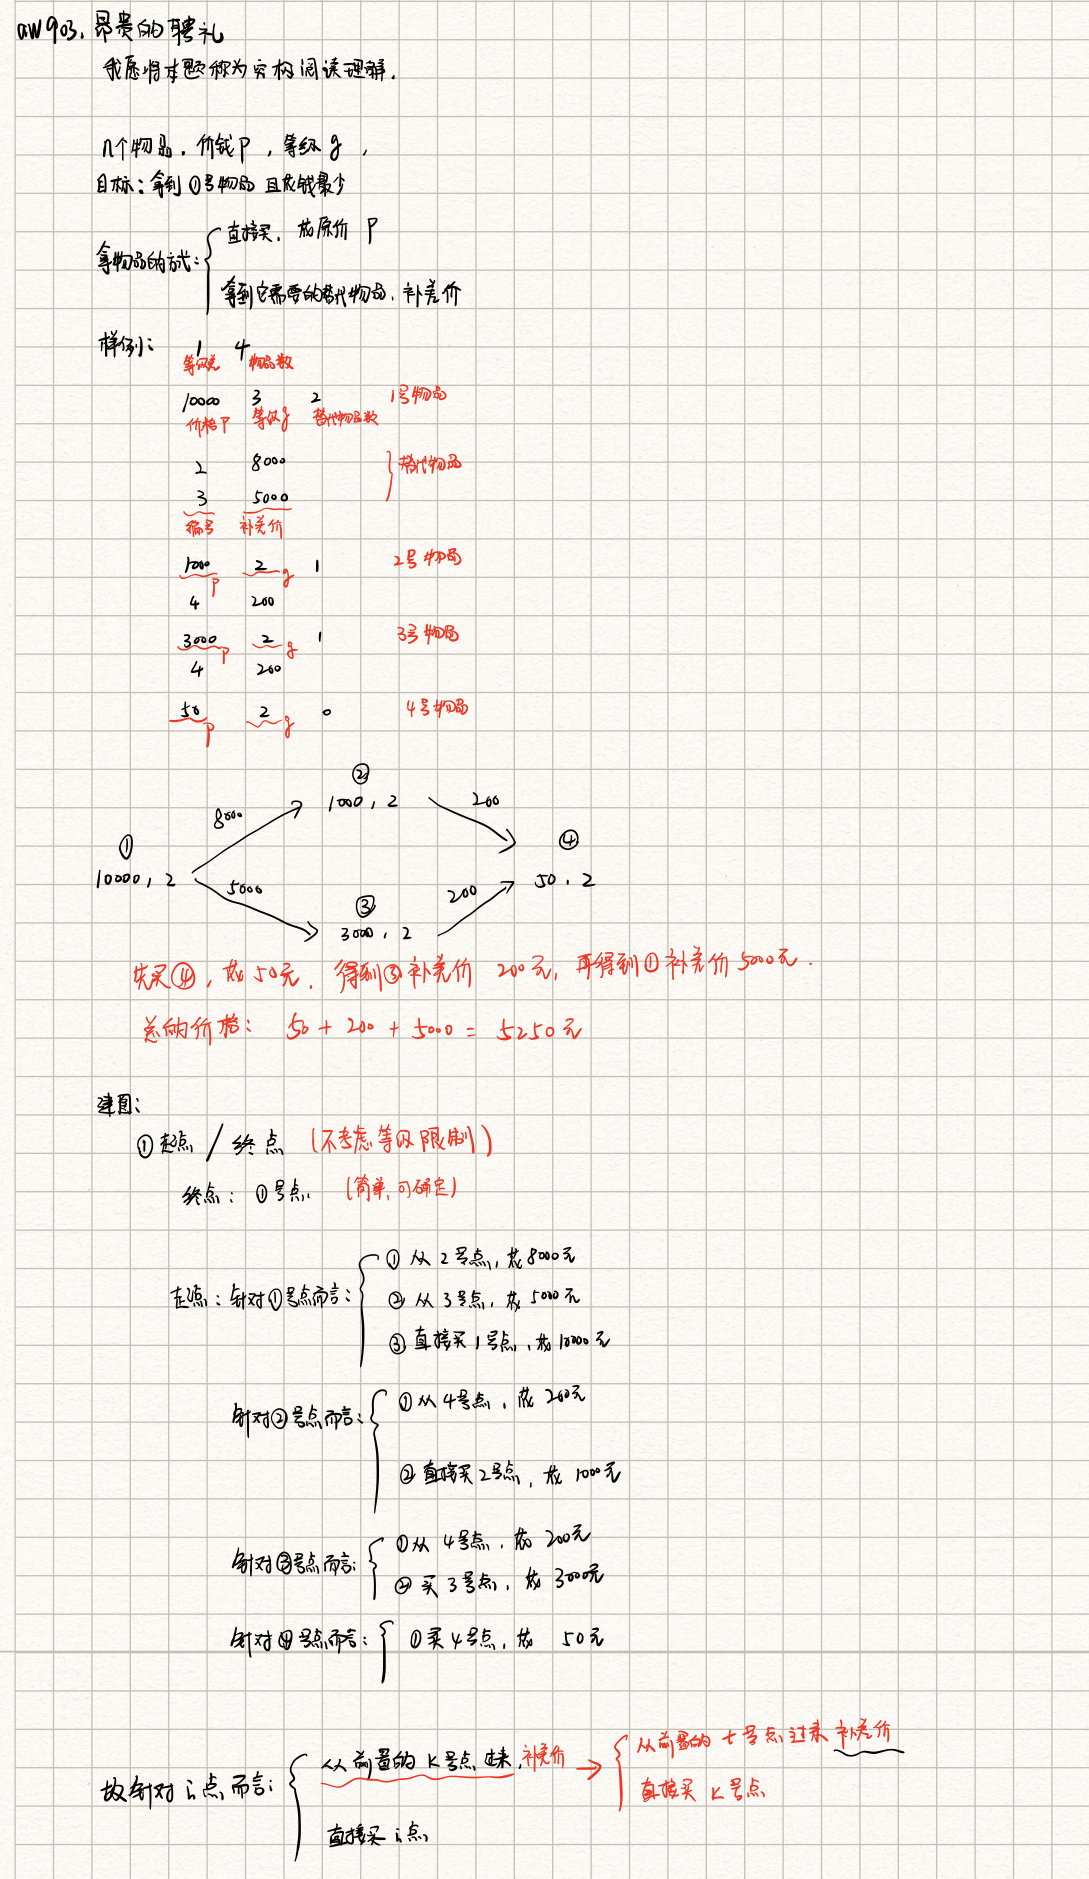 aw903. 昂贵的聘礼
我愿将本题称为究极阅读理解.
n个物品. 价钱P , 等级g ,
目标: 拿到①号物品 且花钱最少
拿物品的方式: 直接买, 花原价 P
拿到它需要的替代物品, 补差价
样例: 1 4
等级差 物品数
10000 3 2 1号物品
价格P 等级g 替代物品数
2 8000 替代物品
3 5000
编号 补差价
1000 2 1 2号物品
P g
4 200
3000 2 1 3号物品
P g
4 200
50 2 0 4号物品
P g
②
1000, 2
8000 200
① ④
10000, 2 50, 2
5000 200
③
3000, 2
先买④, 花50元, 得到③补差价 200元, 再得到①补差价5000元.
总的价格: 50 + 200 + 5000 = 5250元
建图:
①起点 / 终点 (不考虑等级限制)
终点: ①号点. (简单, 可确定)
起点: 针对①号点而言: ① 从2号点, 花8000元
② 从3号点, 花5000元
③ 直接买1号点, 花10000元
针对②号点而言: ①从4号点, 花200元
② 直接买2号点, 花1000元
针对③号点而言: ①从4号点, 花200元
② 买3号点, 花3000元
针对④号点而言: ①买4号点, 花 50元
故针对i点而言: 从前置的K号点过来, 补差价 → 从前置的t号点过来补差价
直接买K号点
直接买i点